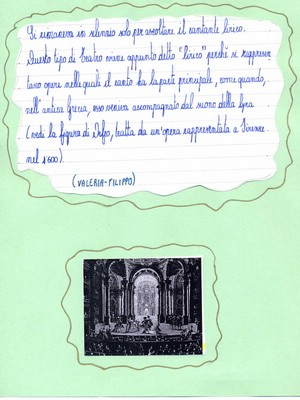 Si rimaneva in silenzio solo per ascoltare il cantante lirico.
Questo tipo di teatro viene appunto detto "lirico" perché si rappresen
tano opere nelle quali il canto ha la parte principale, come quando,
nell'antica Grecia, esso veniva accompagnato dal suono della lyra
(vedi la figura di Orfeo, tratta da un'opera rappresentata a Firenze
nel 1600).
(VALERIA-FILIPPO)